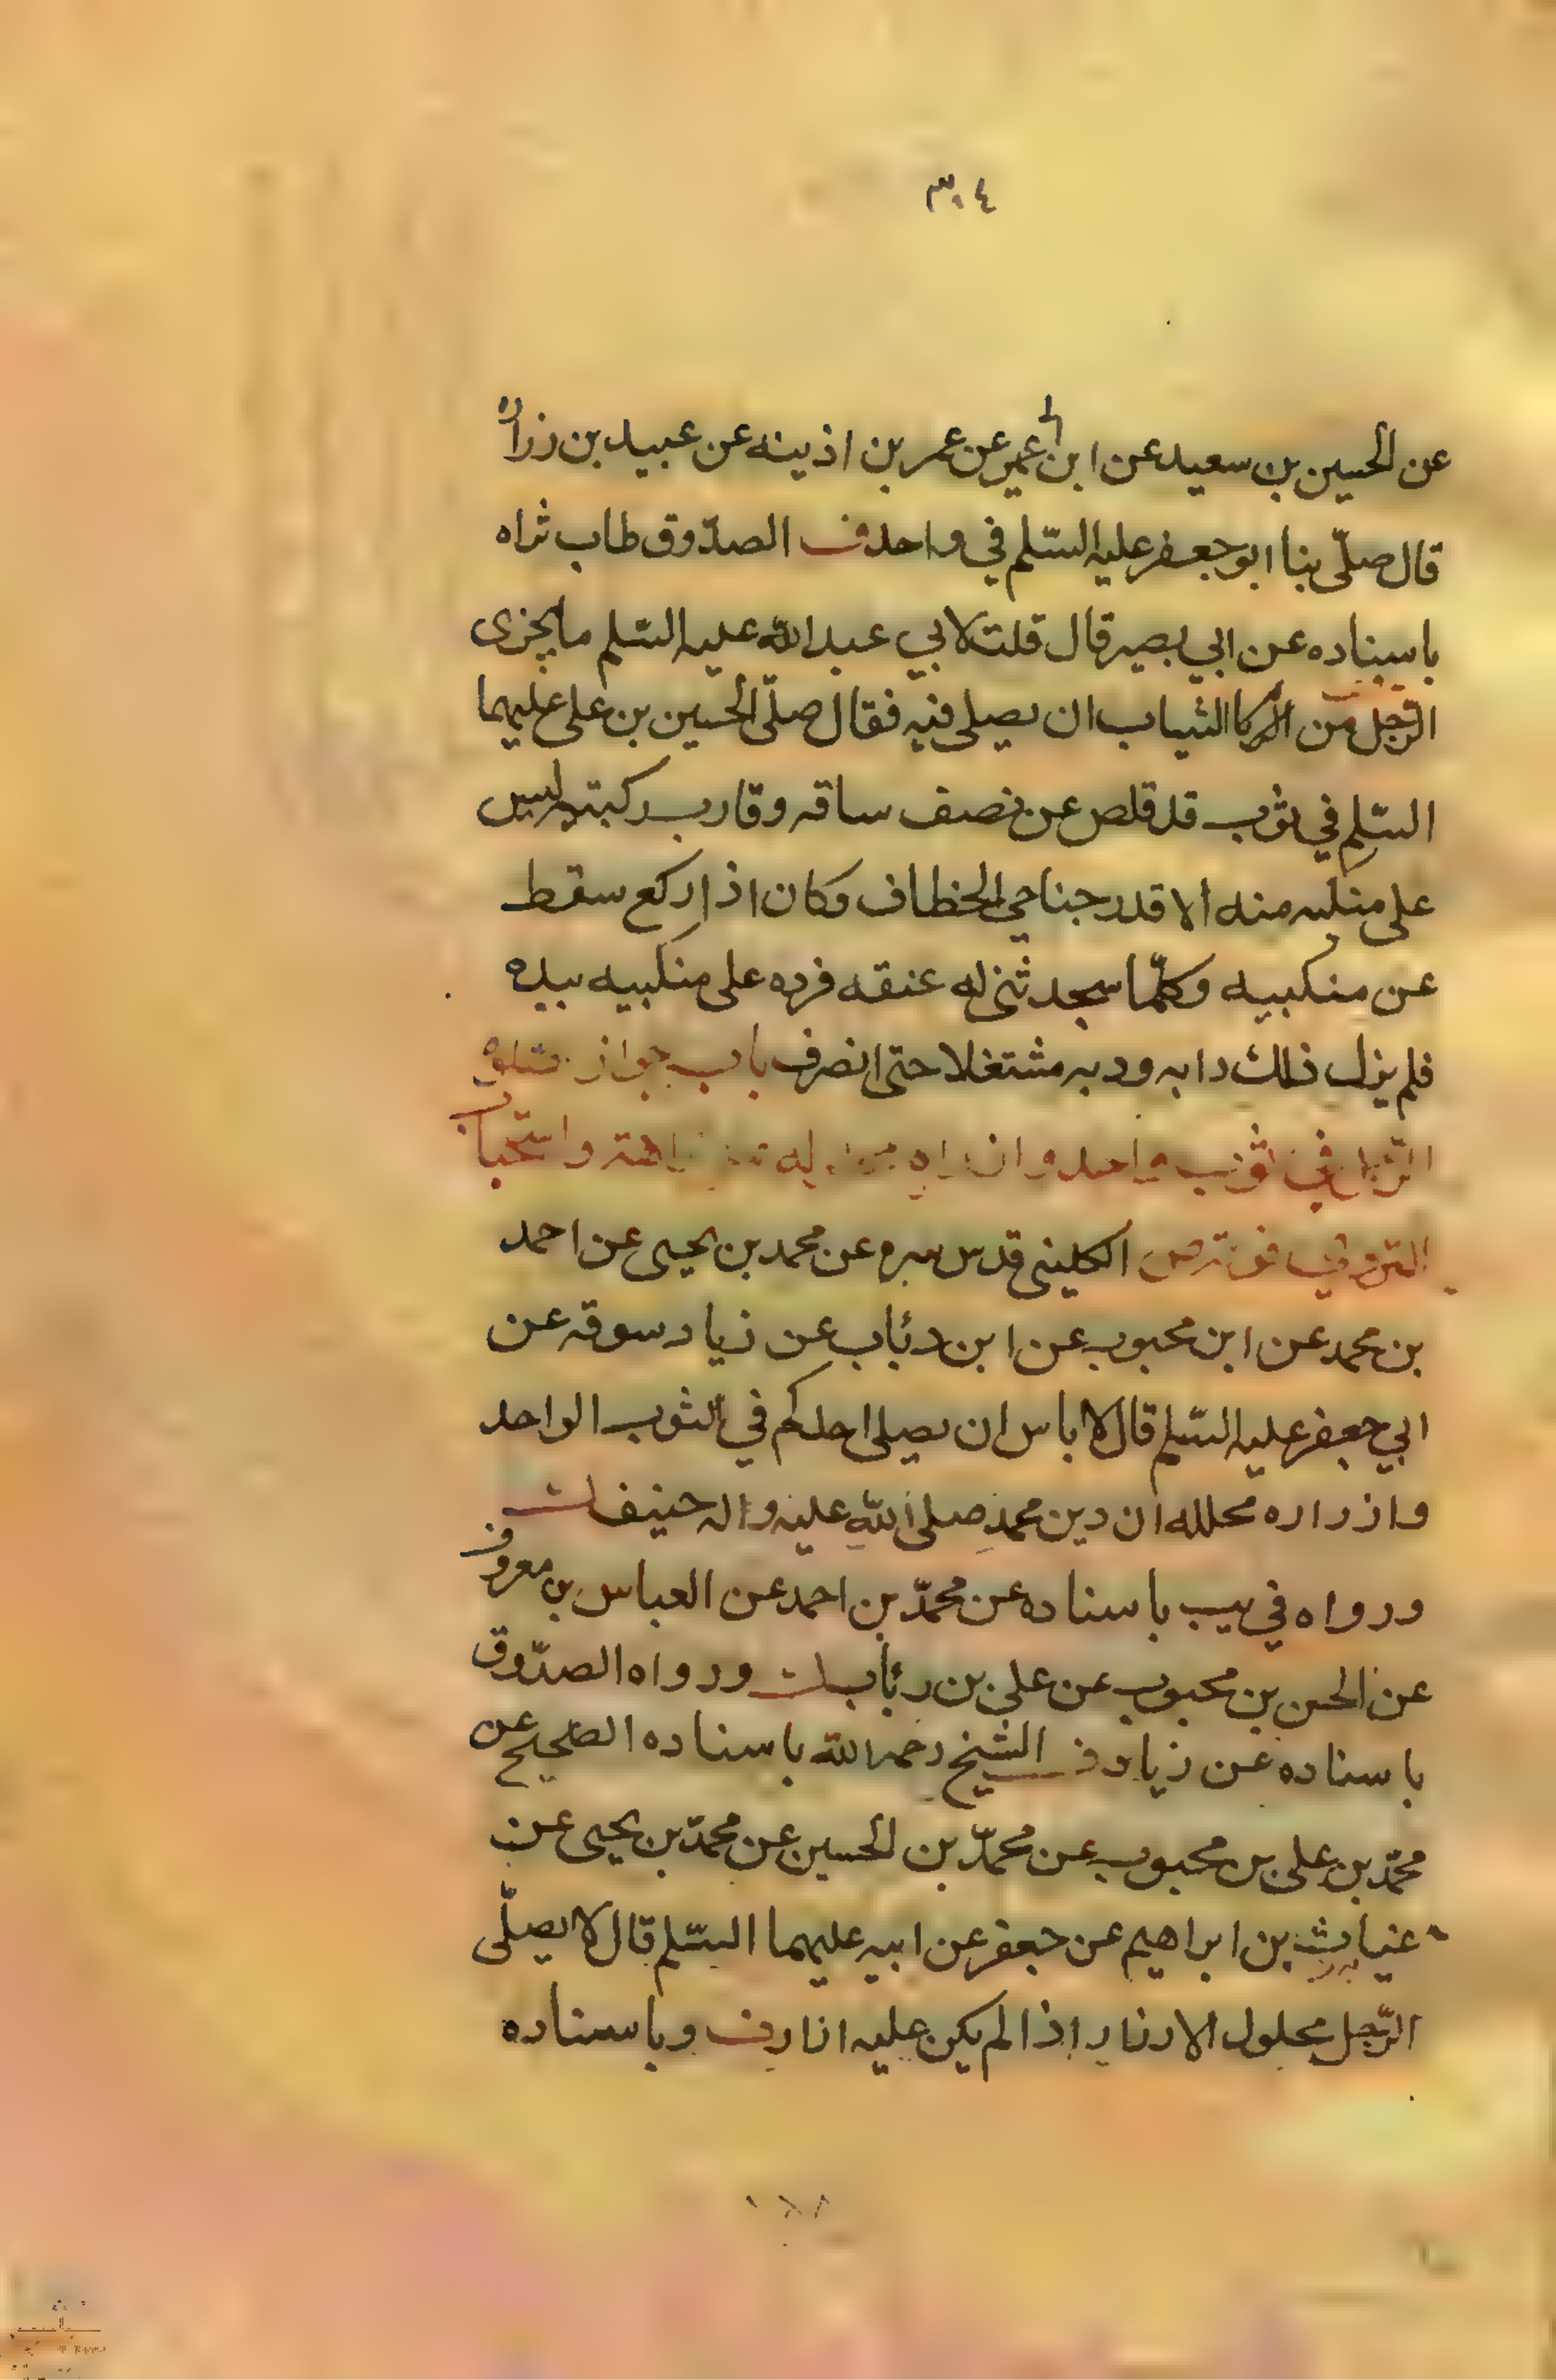 ٣٠٤
عن الحسين بن سعيد عن ابن ابي عمير عن عمر بن اذينه عن عبيد بن زراره
قال صلّى بنا ابو جعفر عليه السّلم في واحد ف الصدّوق طاب ثراه
باسناده عن ابي بصير قال قلت لابي عبد الله عليه السّلم ما يجزى
الرّجل من الثياب ان يصلى فيه فقال صلّى الحسين بن على عليهما
السّلم في ثوب قد قلص عن نصف ساقه وقارب ركبتيه ليس
على منكبيه منه الا قدر جناحي الخطاف وكان اذا ركع سقط
عن منكبيه وكلّما سجد له عنقه فرده على منكبيه بيده
فلم يزل ذلك دابه ودبه مشتغلا حتى انصرف باب جواز صلوة
الرّجل في ثوب واحد وان واستحباب
الكلينى قدس سره عن محمد بن يحيى عن احمد
بن محمد عن ابن محبوب عن ابن رئاب عن زياد سوقه عن
ابي جعفر عليه السّلم قال لا باس ان يصلى احدكم في الثوب الواحد
وازراره محلله ان دين محمد صلى الله عليه واله حنيف
ورواه في يب باسناده عن محمّد بن احمد عن العباس بن معروف
عن الحسن بن محبوب عن على بن رئاب ورواه الصدّوق
باسناده عن زياد ف الشيخ رحمه الله باسناده الصّحيح عن
محمّد بن على بن محبوب عن محمّد بن الحسين عن محمّد بن يحيى عن
غياث بن ابراهيم عن جعفر عن ابيه عليهما السّلم قال لا يصلّى
الرّجل محلول الازرار اذا لم يكن عليه ازار ف وباسناده